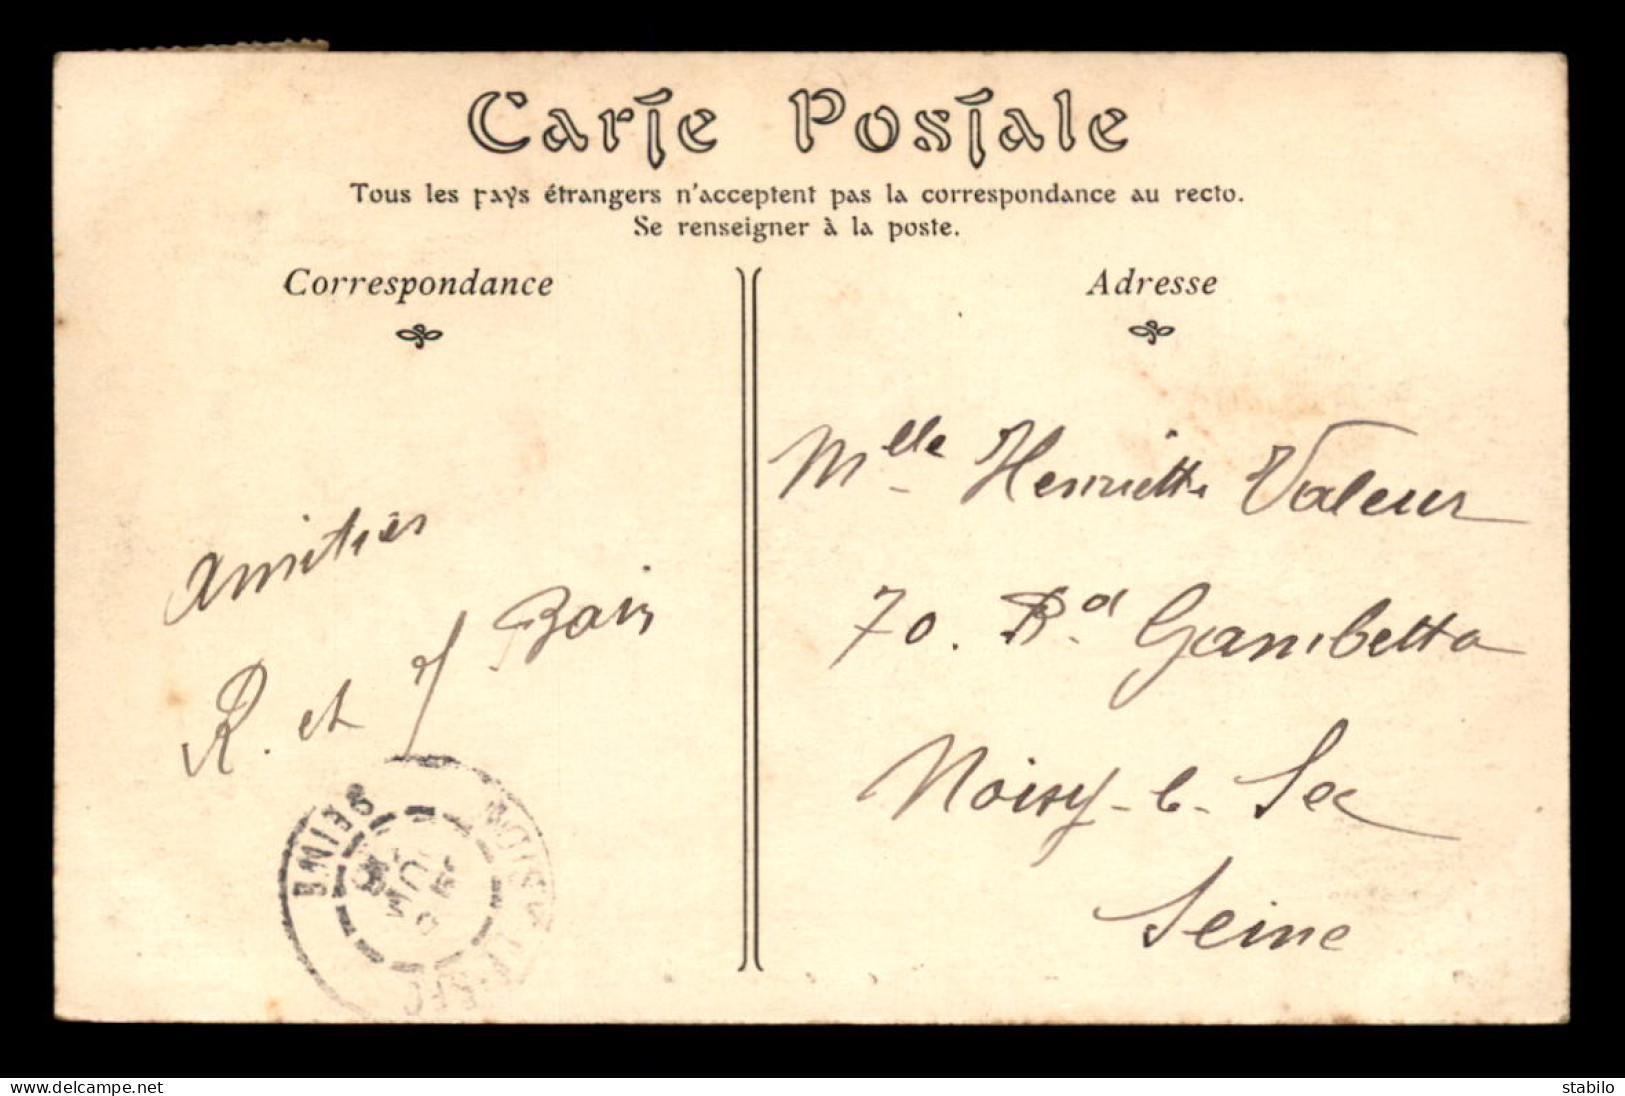 Carte Postale
Tous les pays étrangers n'acceptent pas la correspondance au recto.
Se renseigner à la poste.
Correspondance
Adresse
Amitiés
R. et J Bain
Mlle Henriette Valeur
70. Bd Gambetta
Noisy-le-Sec
Seine
NOISY LE SEC
SEINE
www.delcampe.net
stabilo